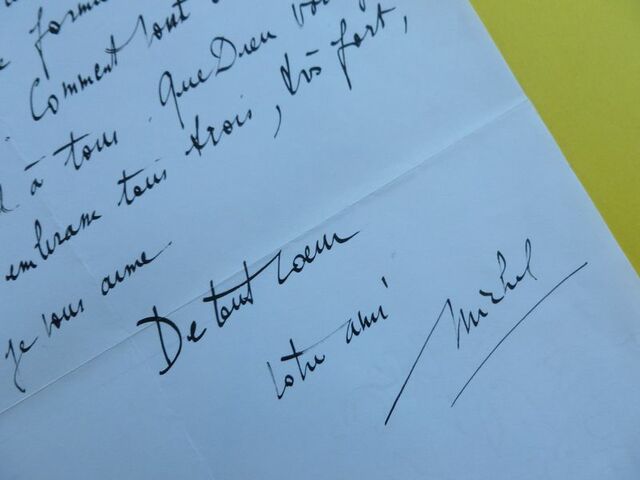 forma
Comment vont
à tous. Que Dieu vous
embrasse tous trois, très fort,
je vous aime.
De tout coeur
votre ami
Michel